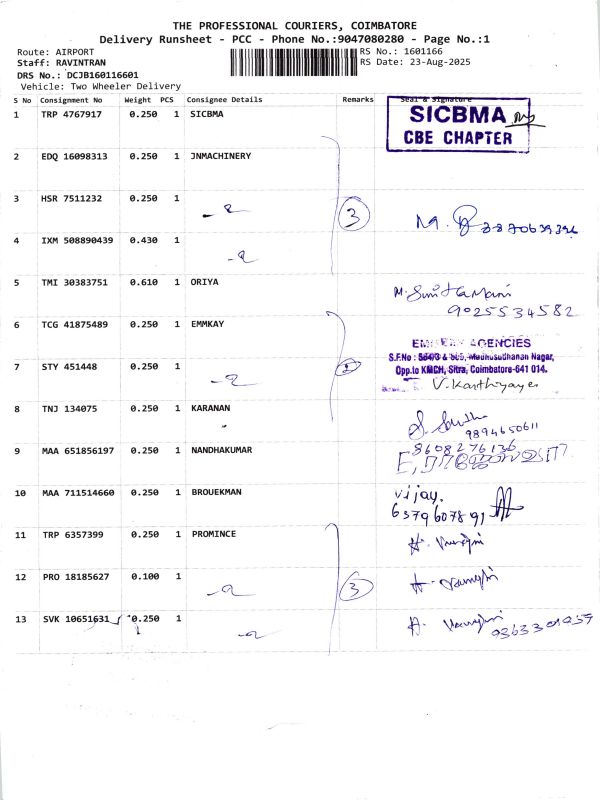 THE PROFESSIONAL COURIERS, COIMBATORE
Delivery Runsheet - PCC - Phone No.:9047080280 - Page No.:1
Route: AIRPORT RS No.: 1601166
Staff: RAVINTRAN RS Date: 23-Aug-2025
DRS No.: DCJB160116601
Vehicle: Two Wheeler Delivery
S No Consignment No Weight PCS Consignee Details Remarks Seal & Signature
1 TRP 4767917 0.250 1 SICBMA SICBMA
CBE CHAPTER
2 EDQ 16098313 0.250 1 JNMACHINERY
3 HSR 7511232 0.250 1 3
4 IXM 508890439 0.430 1
5 TMI 30383751 0.610 1 ORIYA
9025534582
6 TCG 41875489 0.250 1 EMMKAY
AGENCIES
7 STY 451448 0.250 1 2 S.F.No : & Madhusudhanan Nagar,
Opp.to KMCH, Sitra, Coimbatore-641 014.
8 TNJ 134075 0.250 1 KARANAN
9894650611
9 MAA 651856197 0.250 1 NANDHAKUMAR 8608276136
10 MAA 711514660 0.250 1 BROUEKMAN vijay.
6379607891
11 TRP 6357399 0.250 1 PROMINCE
12 PRO 18185627 0.100 1 3
13 SVK 10651631 0.250 1